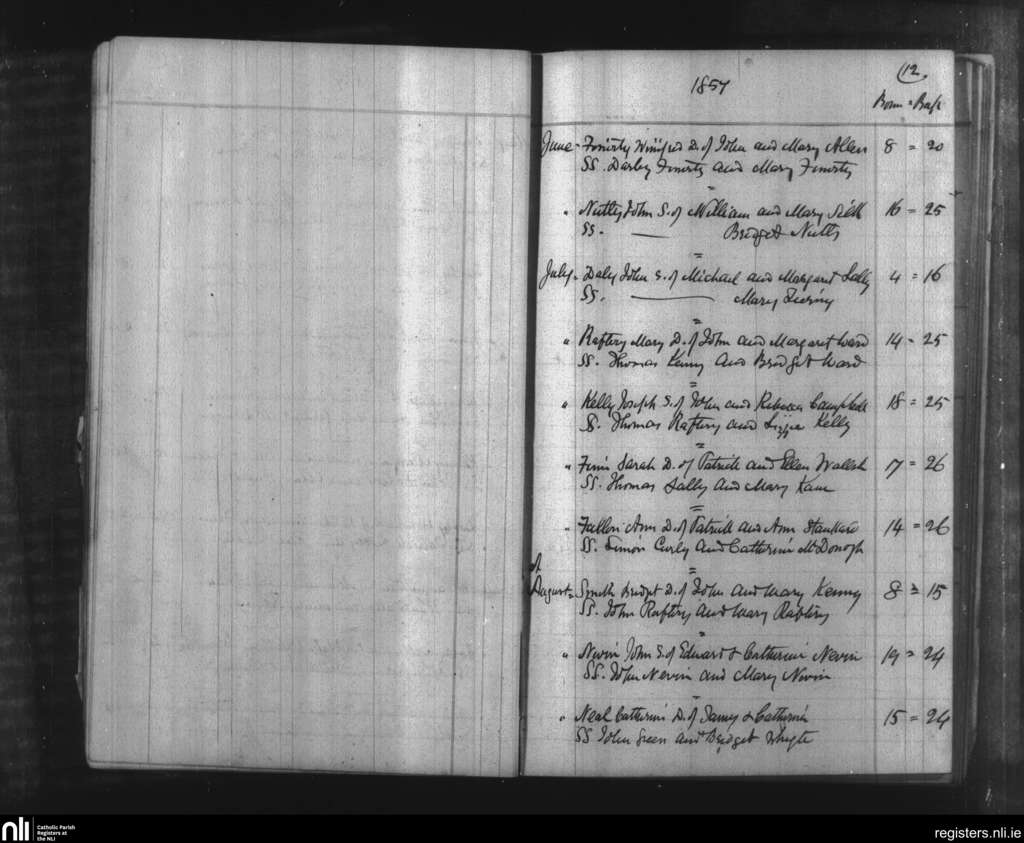 12
1857
Born = Bap
June - Finerty Winifred D. of John and Mary Allen 8 = 20
SS. Darby Finerty and Mary Finerty
" Nutty John S. of William and Mary Silk 16 = 25
SS. — Bridget Nutty
July - Daly John S. of Michael and Margaret Lally 4 = 16
SS. — Mary
" Raftery Mary D. of John and Margaret Ward 14 = 25
SS. Thomas Kenny and Bridget Ward
" Kelly Joseph S. of John and Rebecca Campbell 18 = 25
SS. Thomas Raftery and Lizzie Kelly
" Finn Sarah D. of Patrick and Ellen Walsh 17 = 26
SS. Thomas Lally and Mary Kane
" Fallon Ann D. of Patrick and Ann Stankard 14 = 26
SS. Simon Curly and Catherine McDonogh
August - Smith Bridget D. of John and Mary Kenny 8 = 15
SS. John Raftery and Mary Raftery
" Nevin John S. of Edward & Catherine Nevin 19 = 24
SS. John Nevin and Mary Nevin
" Neal Catherine D. of James & Catherine 15 = 24
SS John Green and Bridget Whyte
nli
Catholic Parish
Registers at
the NLI
registers.nli.ie